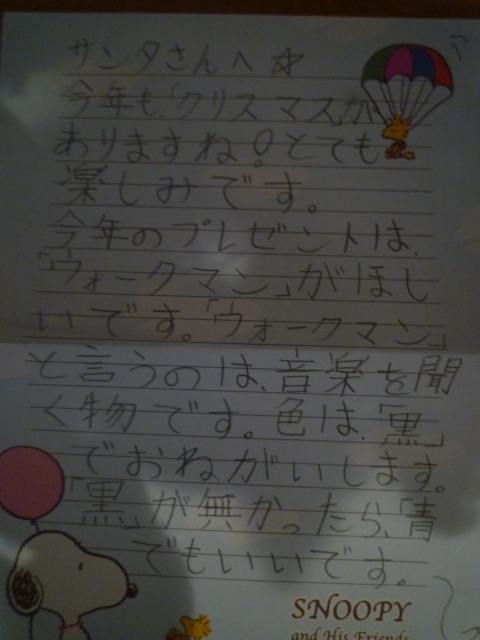 サンタさんへ☆
今年も、「クリスマス」が
ありますね!とても
楽しみです。
今年のプレゼントは、
「ウォークマン」がほし
いです。「ウォークマン」
と言うのは、音楽を聞
く物です。色は、「黒」
でおねがいします。
「黒」が無かったら、「青」
でもいいです。
SNOOPY
and His Friends